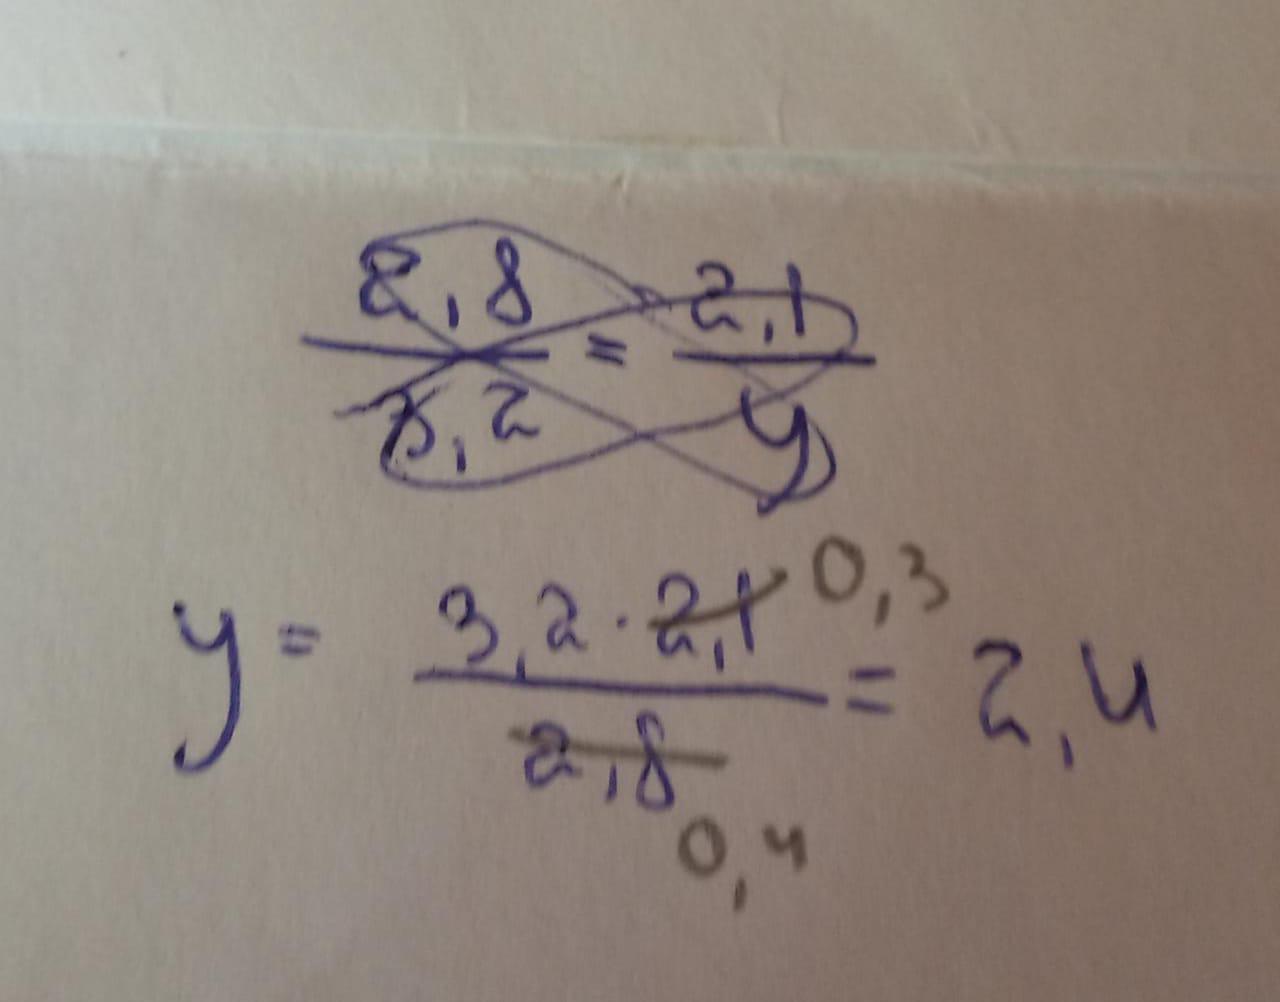 2,8 / 3,2 = 2,1 / y
y = 3,2 · 2,1 0,3 / 2,8 0,4 = 2,4